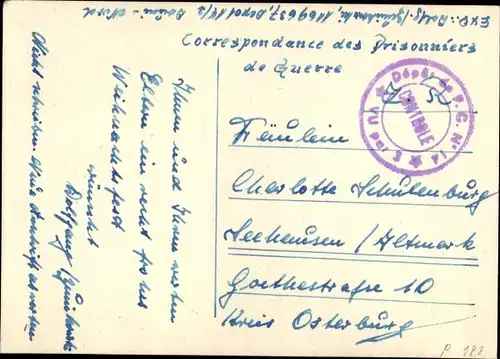 Exp.: Wolfg. 1169637, Depot
Correspondance des Prisonniers
de Guerre
Dépôt de P. G. N° 14
CONTROLE
VU
Fräulein
Charlotte Schulenburg
Seehausen / Altmark
Goethestraße 10
Kreis Osterburg
Ihnen und Ihren werten
Eltern ein recht frohes
Weihnachtsfest
wünscht
Wolfgang
Nicht schreiben. Neue Anschrift abwarten
P. 188